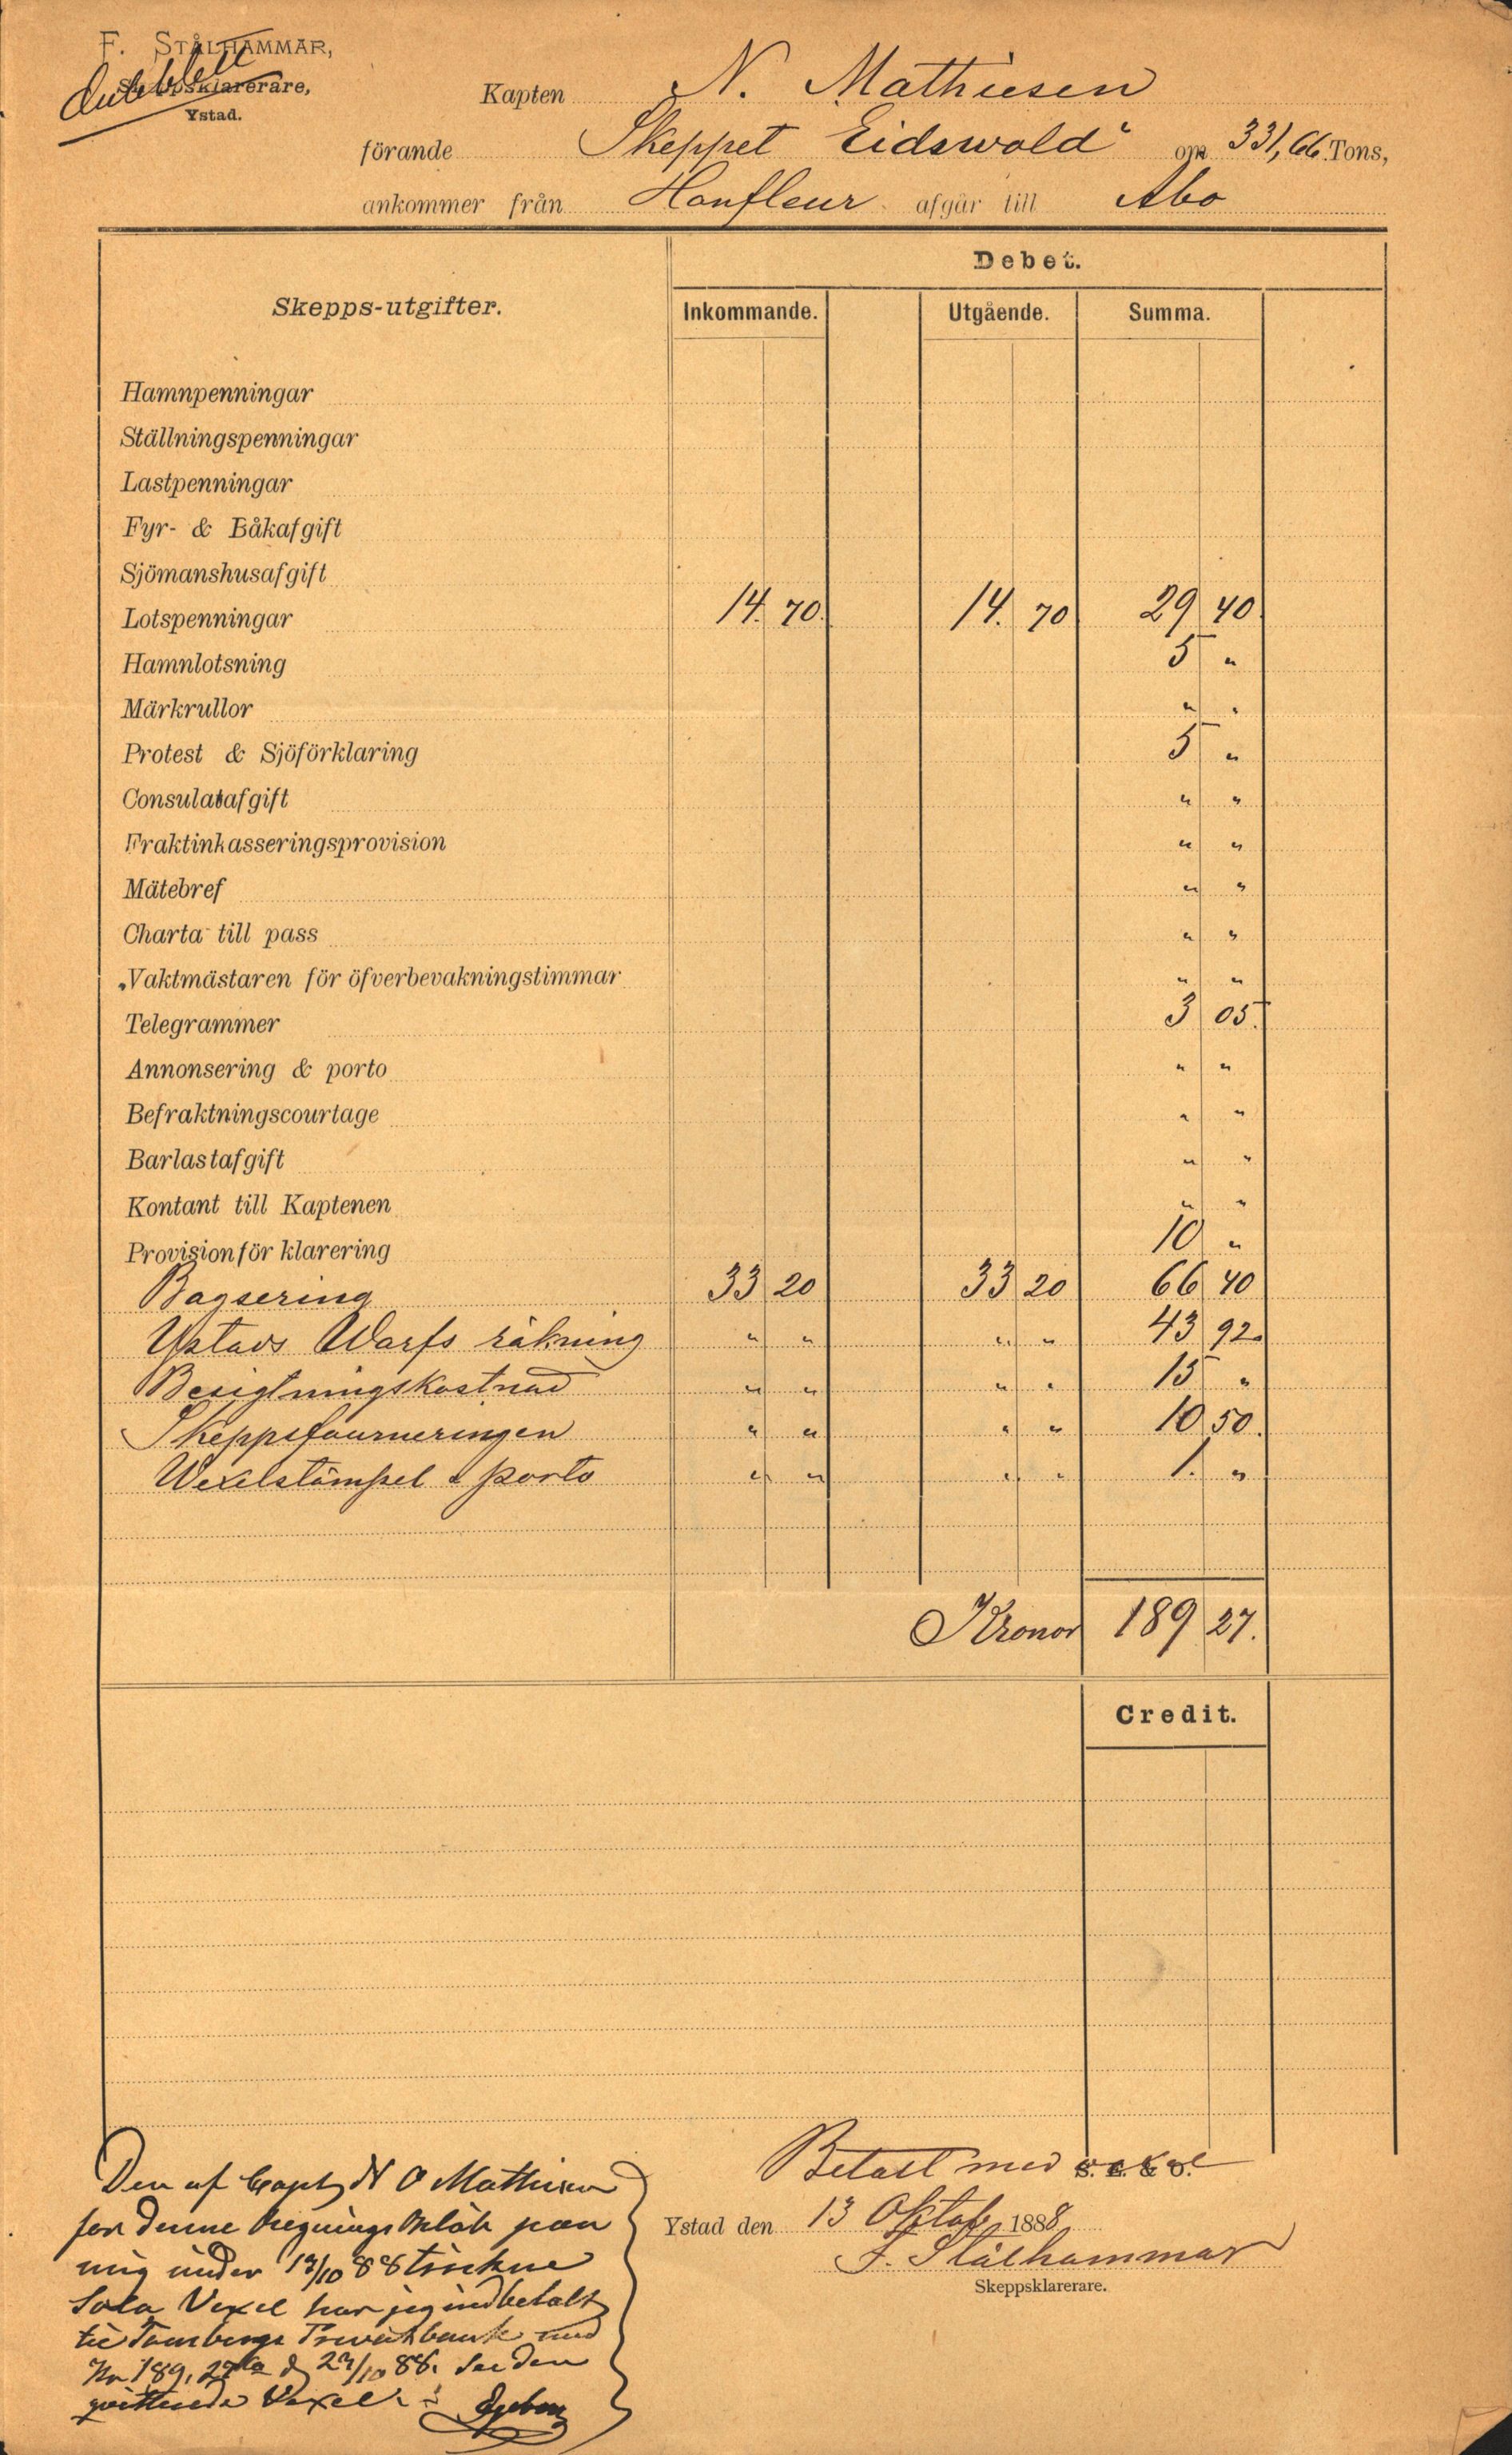 F. STÅLHAMMAR,
Skeppsklarerare,
Ystad.
dubblett
Kapten N. Mathiesen
förande Skeppet Eidswold om 331,66 Tons,
ankommer från Honfleur afgår till Åbo
Debet.
Skepps-utgifter. Inkommande. Utgående. Summa.
Hamnpenningar
Ställningspenningar
Lastpenningar
Fyr- & Båkafgift
Sjömanshusafgift
Lotspenningar 14. 70. 14. 70 29 40.
Hamnlotsning 5 "
Märkrullor " "
Protest & Sjöförklaring 5 "
Consulatafgift " "
Fraktinkasseringsprovision " "
Mätebref " "
Charta till pass " "
Vaktmästaren för öfverbevakningstimmar " "
Telegrammer 3 05.
Annonsering & porto " "
Befraktningscourtage " "
Barlastafgift " "
Kontant till Kaptenen " "
Provision för klarering 10 "
Bogsering 33 20 33 20 66 40
Ystads Warfs räkning " " " " 43 92
Besigtningskostnad " " " " 15 "
Skeppsfourneringen " " " " 10 50.
Wexelstämpel & porto " " " " 1. "
Kronor 189 27.
Credit.
Betalt med vexel
S. E. & O.
Ystad den 13 Oktob 1888
F. Stålhammar
Skeppsklarerare.
Den af Capt N O Mathisen
for denne Regnings Beløb paa
mig under 13/10 88 trukne
Sola Vexel har jeg indbetalt
til Tønsbergs Privatbank med
Kr 189. 27 d 23/10 88. Se den
qvitterede Vexel.